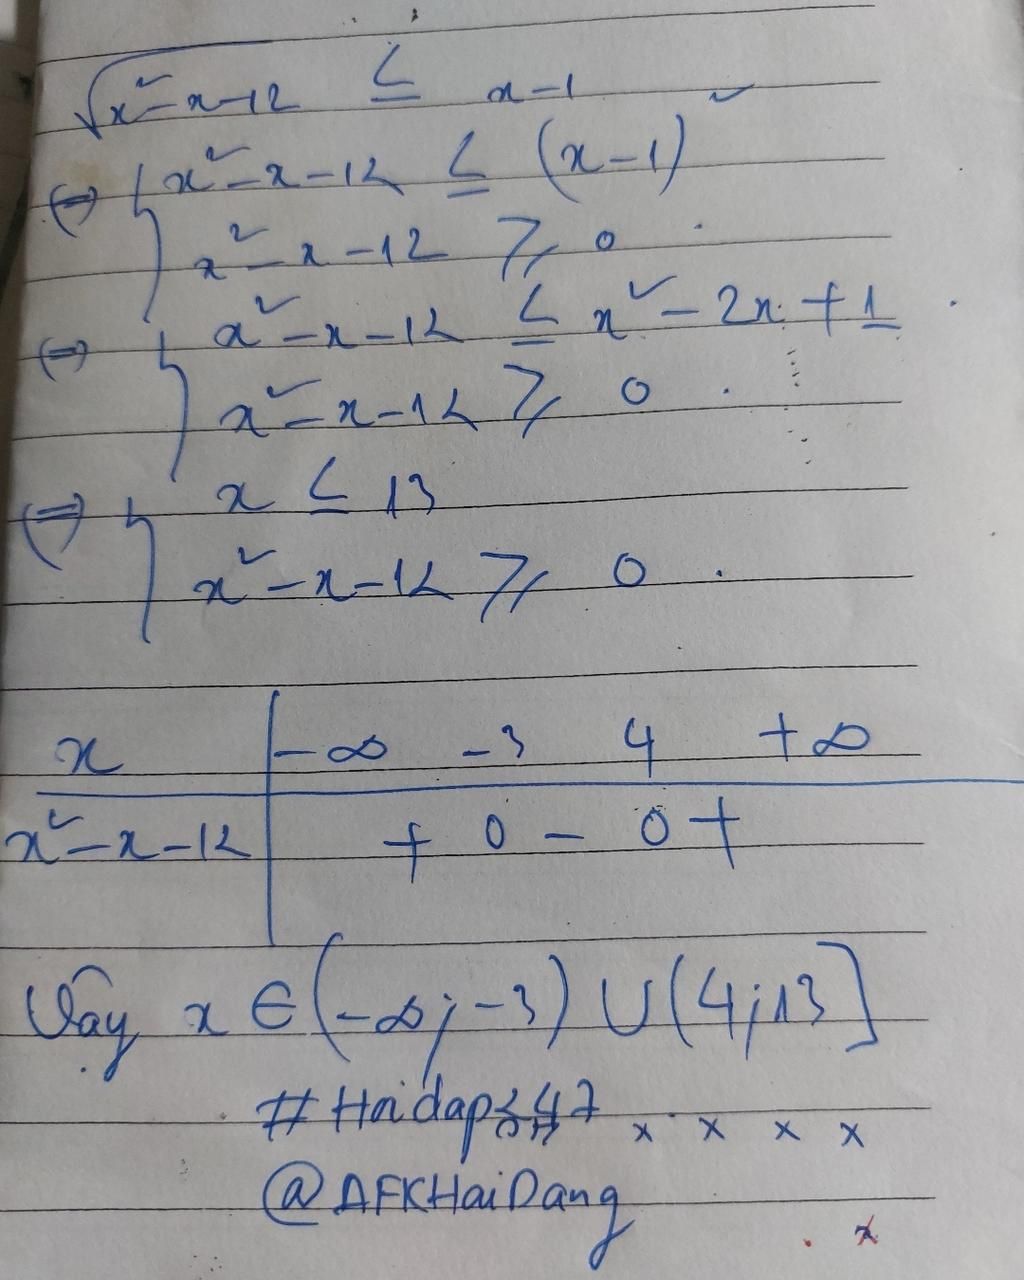 √(x² - x - 12) ≤ x - 1
(=) { x² - x - 12 ≤ (x - 1)²
x² - x - 12 ≥ 0
(=) { x² - x - 12 ≤ x² - 2x + 1
x² - x - 12 ≥ 0
(=) { x ≤ 13
x² - x - 12 ≥ 0
x | -∞ -3 4 +∞
x² - x - 12 | + 0 - 0 +
Vậy x ∈ (-∞; -3) ∪ (4; 13]
#Hoidap247
x x x x
@AFKHaiDang
x